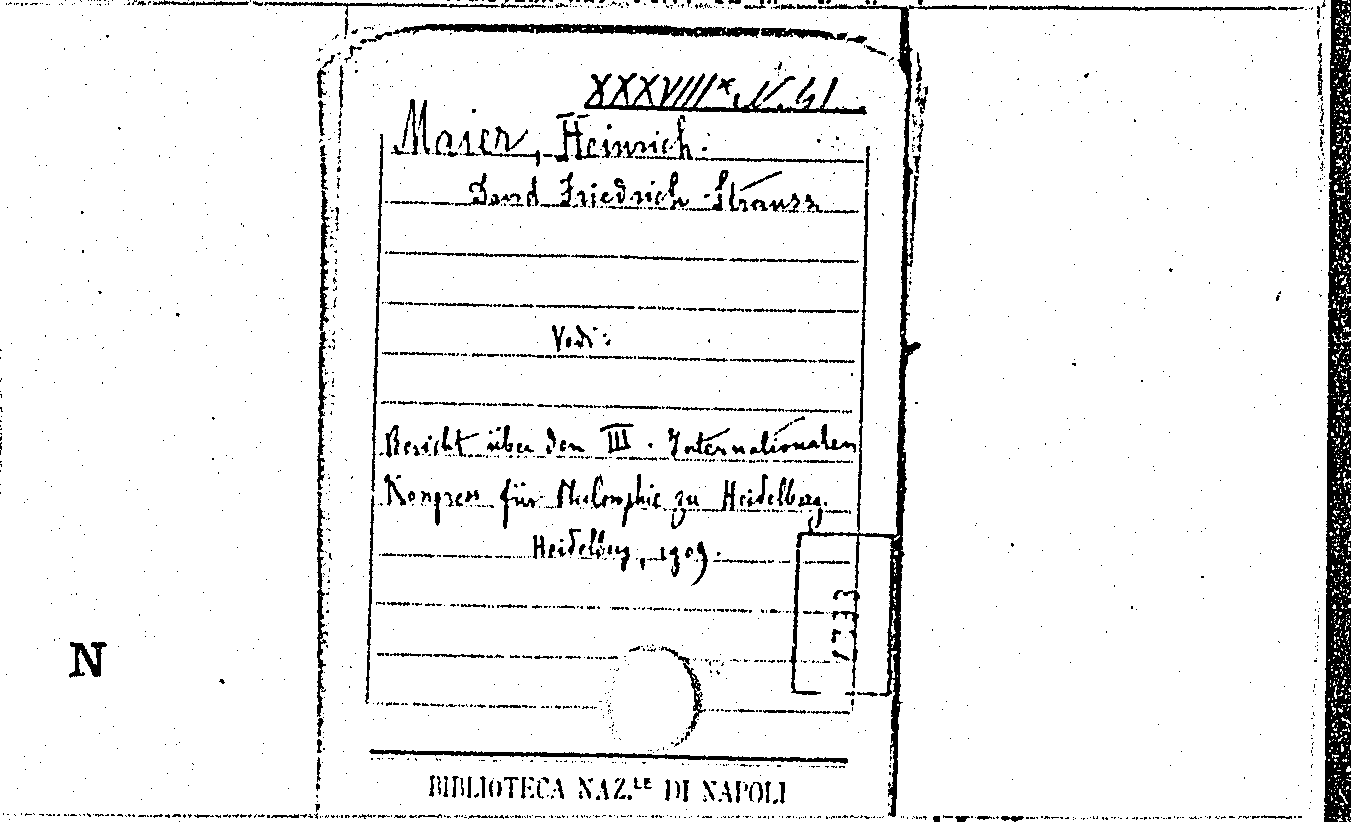 XXXVIII*. N. 41
Maier, Heinrich.
David Friedrich Strauss
Vedi:
Bericht über den III. Internationalen
Kongress für Philosophie zu Heidelberg.
Heidelberg, 1909.
1733
N
BIBLIOTECA NAZ.LE DI NAPOLI